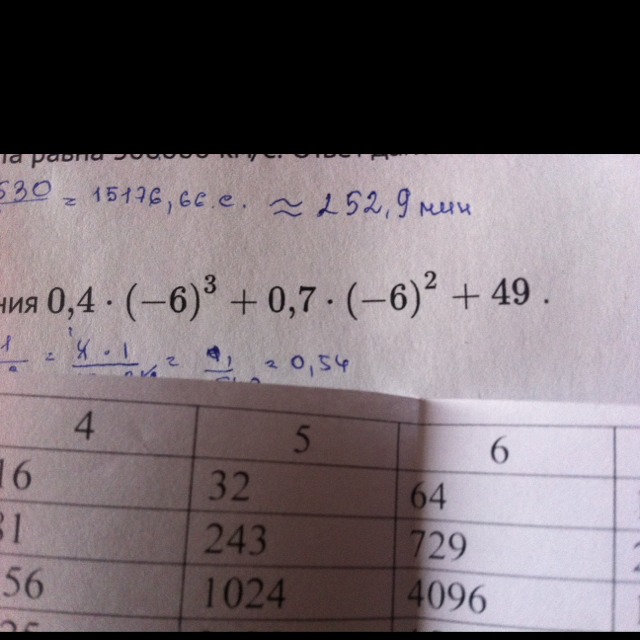 та равна 300.000 км/с. Ответ да
530 = 15176,66 с. ≈ 252,9 мин
ния 0,4 · (−6)³ + 0,7 · (−6)² + 49 .
= 4 · 1 = = 0,54
4 5 6
16 32 64
81 243 729
256 1024 4096